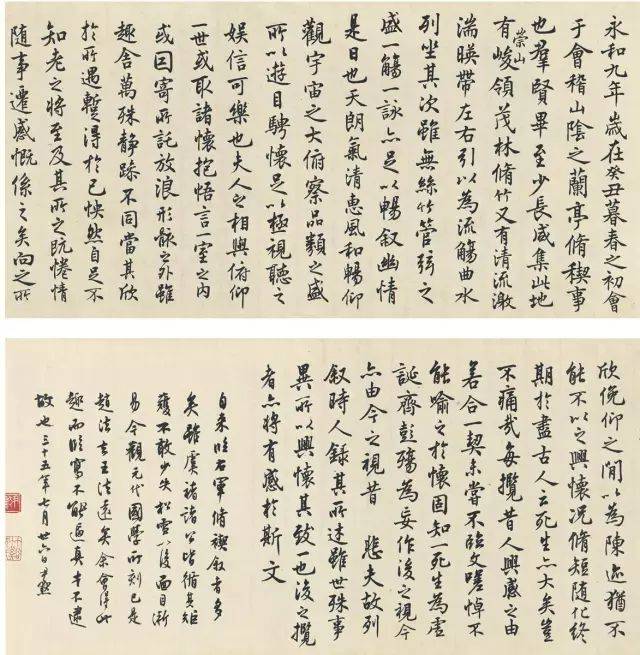 永和九年歲在癸丑暮春之初會
于會稽山陰之蘭亭脩稧事
也羣賢畢至少長咸集此地
有崇山峻領茂林脩竹又有清流激
湍暎帶左右引以為流觴曲水
列坐其次雖無絲竹管弦之
盛一觴一詠亦足以暢叙幽情
是日也天朗氣清惠風和暢仰
觀宇宙之大俯察品類之盛
所以遊目騁懷足以極視聽之
娛信可樂也夫人之相與俯仰
一世或取諸懷抱悟言一室之內
或因寄所託放浪形骸之外雖
趣舍萬殊静躁不同當其欣
於所遇暫得於己怏然自足不
知老之將至及其所之既惓情
隨事遷感慨係之矣向之所
欣俛仰之間以為陳迹猶不
能不以之興懷況脩短隨化終
期於盡古人云死生亦大矣豈
不痛哉每攬昔人興感之由
若合一契未嘗不臨文嗟悼不
能喻之於懷固知一死生為虛
誕齊彭殤為妄作後之視今
亦由今之視昔 悲夫故列
叙時人錄其所述雖世殊事
異所以興懷其致一也後之攬
者亦將有感於斯文
自來臨右軍脩禊叙者多
矣雖虞褚諸公皆循其矩
矱不敢少失松雪以後面目漸
易今觀元代國學所刻已是
趙法去王法遠矣余會得此
趣而臨寫不能逼真才不逮
故也三十五年七月廿六日尹默